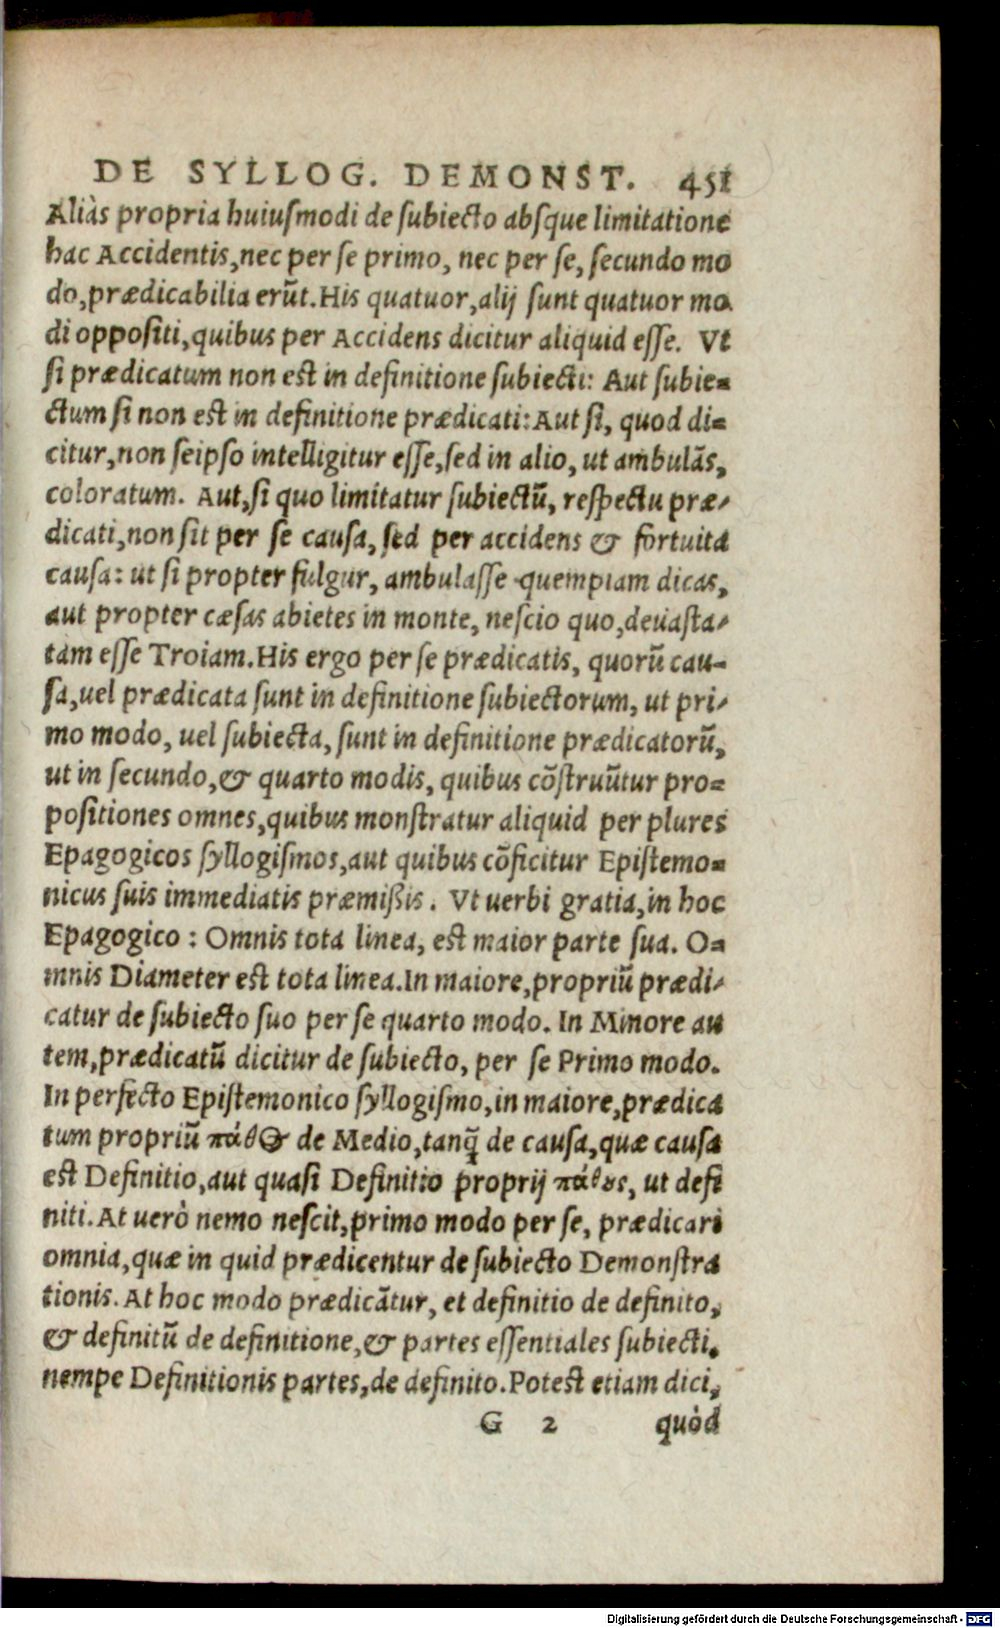 DE SYLLOG. DEMONST. 451
Aliàs propria huiusmodi de subiecto absque limitatione
hac Accidentis, nec per se primo, nec per se, secundo mo
do, prædicabilia erũt. His quatuor, alij sunt quatuor mo
di oppositi, quibus per Accidens dicitur aliquid esse. Vt
si prædicatum non est in definitione subiecti: Aut subie=
ctum si non est in definitione prædicati: Aut si, quod di=
citur, non seipso intelligitur esse, sed in alio, ut ambulãs,
coloratum. Aut, si quo limitatur subiectũ, respectu præ-
dicati, non sit per se causa, sed per accidens & fortuita
causa: ut si propter fulgur, ambulasse quempiam dicas,
aut propter cæsas abietes in monte, nescio quo, deuasta-
tam esse Troiam. His ergo per se prædicatis, quorũ cau-
sa, uel prædicata sunt in definitione subiectorum, ut pri-
mo modo, uel subiecta, sunt in definitione prædicatorũ,
ut in secundo, & quarto modis, quibus cõstruũtur pro=
positiones omnes, quibus monstratur aliquid per plures
Epagogicos syllogismos, aut quibus cõficitur Epistemo=
nicus suis immediatis præmißis. Vt uerbi gratia, in hoc
Epagogico: Omnis tota linea, est maior parte sua. O=
mnis Diameter est tota linea. In maiore, propriũ prædi-
catur de subiecto suo per se quarto modo. In Minore au
tem, prædicatũ dicitur de subiecto, per se Primo modo.
In perfecto Epistemonico syllogismo, in maiore, prædica
tum propriũ πάθος de Medio, tanq̃ de causa, quæ causa
est Definitio, aut quasi Definitio proprij πάθους, ut defi
niti. At uerò nemo nescit, primo modo per se, prædicari
omnia, quæ in quid prædicentur de subiecto Demonstra
tionis. At hoc modo prædicãtur, et definitio de definito,
& definitũ de definitione, & partes essentiales subiecti,
nempe Definitionis partes, de definito. Potest etiam dici,
G 2 quòd
Digitalisierung gefördert durch die Deutsche Forschungsgemeinschaft - DFG